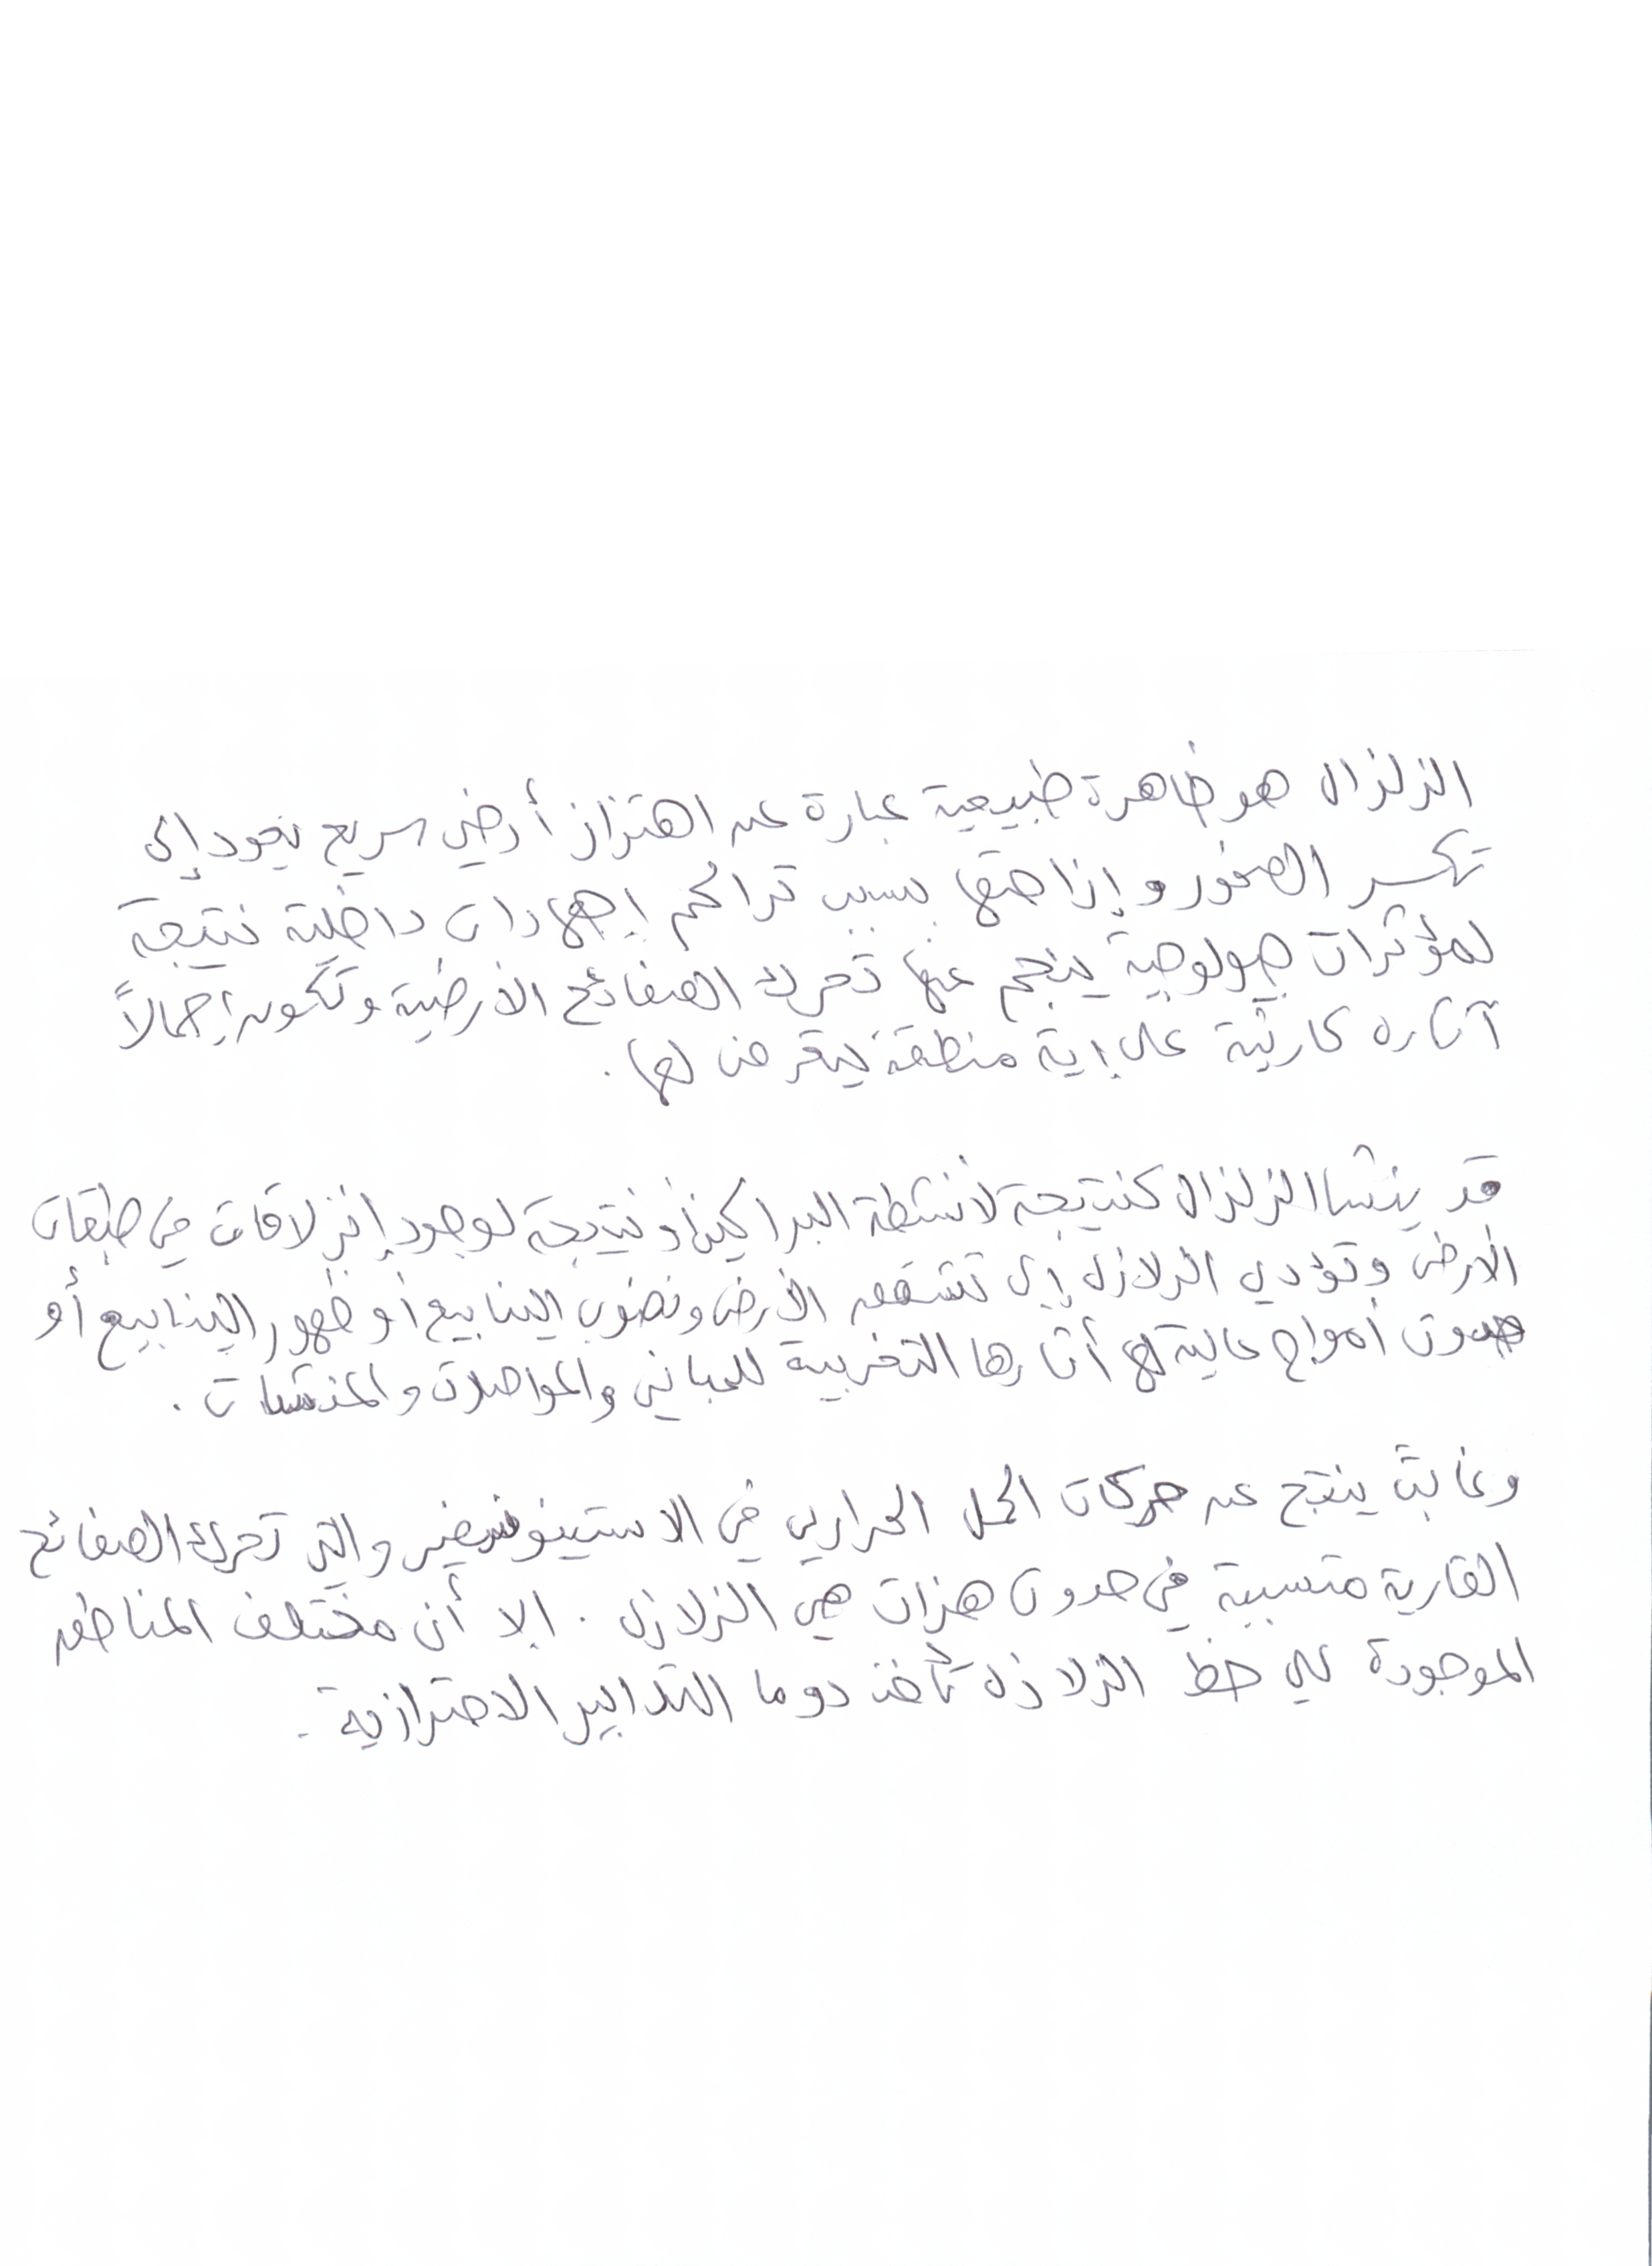 الزلزال هو ظاهرة طبيعية عبارة عن اهتزاز أرضي سريع يعود إلى
تكسر الصخور وإزاحتها بسبب تراكم إجهادات داخلية نتيجة
لمؤثرات جيولوجية ينجم عنها تحرك الصفائح الأرضية وتكون إجمالاً
آثاره كارثية على إية منطقة يتعرض لها.
قد ينشا الزلزال كنتيجة لأنشطة البراكين أو نتيجة لوجود إنزلاقات في طبقات
الأرض وتؤدي الزلازل إلى تشقق الأرض ونضوب الينابيع أو ظهور الينابيع أو
حدوث أمواج عالية لها أثارها التخريبية للمباني والمواصلات والمنشآت.
وغالبا ينتج عن حركات الحمل الحراري في الاستينوسفير والتي تحرك الصفائح
القارية متسببة في حدوث هزات هي الزلازل. إلا أن مختلف المناطق
الموجودة على خط الزلازل تأخذ دوما التدابير الاحترازية.